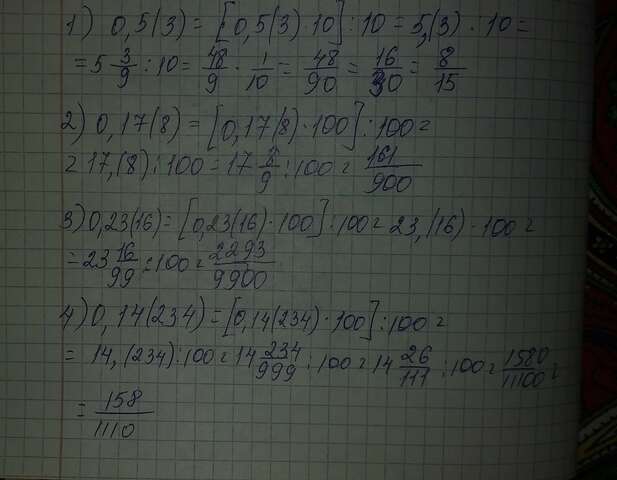 1) 0,5(3) = [0,5(3)·10] : 10 = 5,(3) · 10 =
= 5 3/9 : 10 = 48/9 · 1/10 = 48/90 = 16/30 = 8/15
2) 0,17(8) = [0,17(8)·100] : 100 =
= 17,(8) : 100 = 17 8/9 : 100 = 161/900
3) 0,23(16) = [0,23(16)·100] : 100 = 23,(16) · 100 =
= 23 16/99 : 100 = 2293/9900
4) 0,14(234) = [0,14(234)·100] : 100 =
= 14,(234) : 100 = 14 234/999 : 100 = 14 26/111 : 100 = 1580/11100 =
= 158/1110